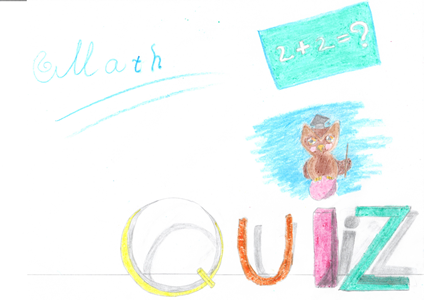 Math
2+2=?
QUIZ